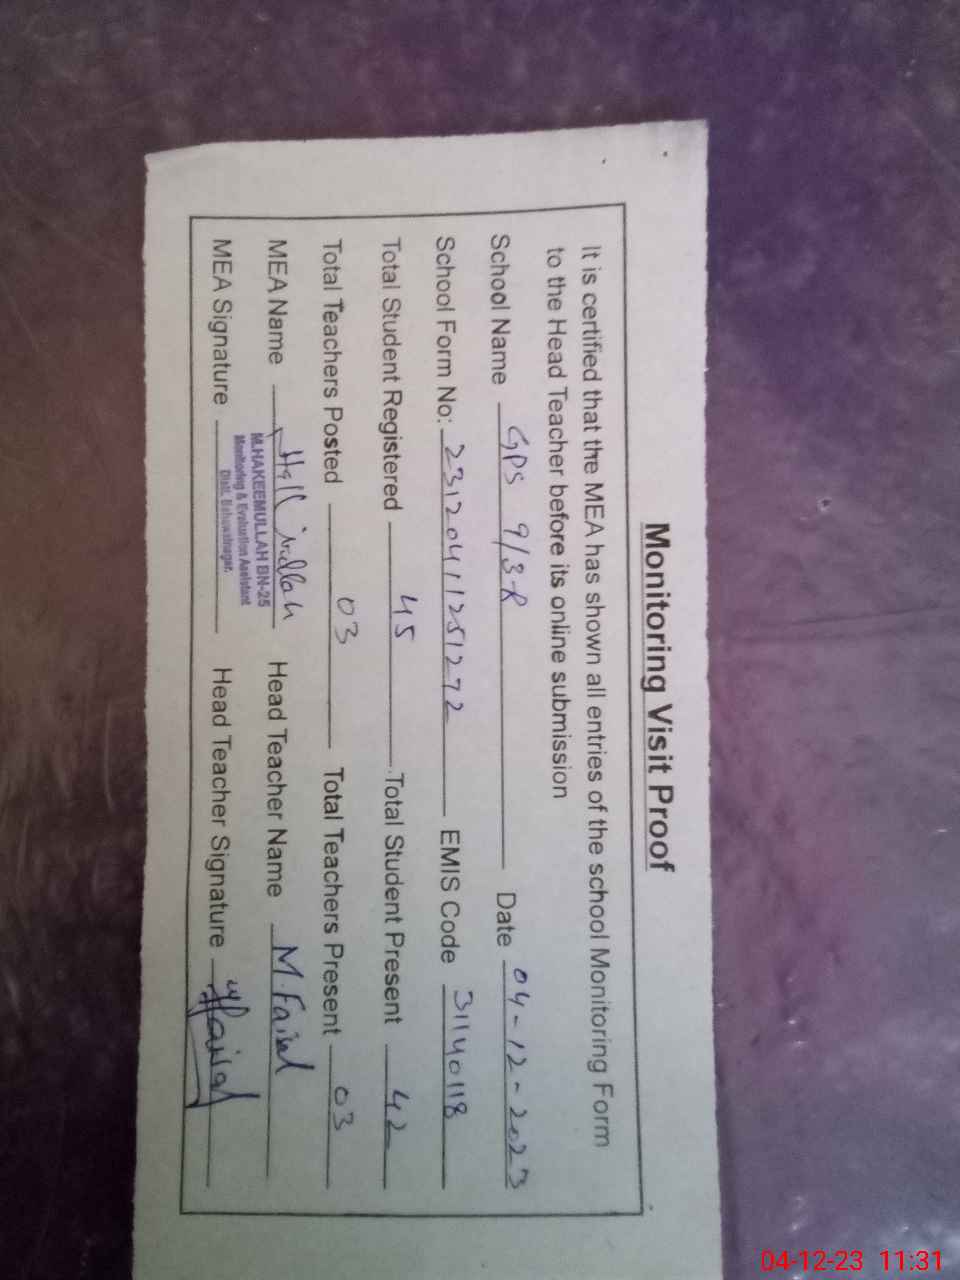 Monitoring Visit Proof
It is certified that the MEA has shown all entries of the school Monitoring Form
to the Head Teacher before its online submission
School Name GPS 9/3-R Date 04-12-2023
School Form No: 23120411251272 EMIS Code 31140118
Total Student Registered 45 Total Student Present 42
Total Teachers Posted 03 Total Teachers Present 03
MEA Name Head Teacher Name M. Faisal
M.HAKEEMULLAH BN-25
Monitoring & Evaluation Assistant
Distt. Bahawalnagar.
MEA Signature Head Teacher Signature
04-12-23 11:31